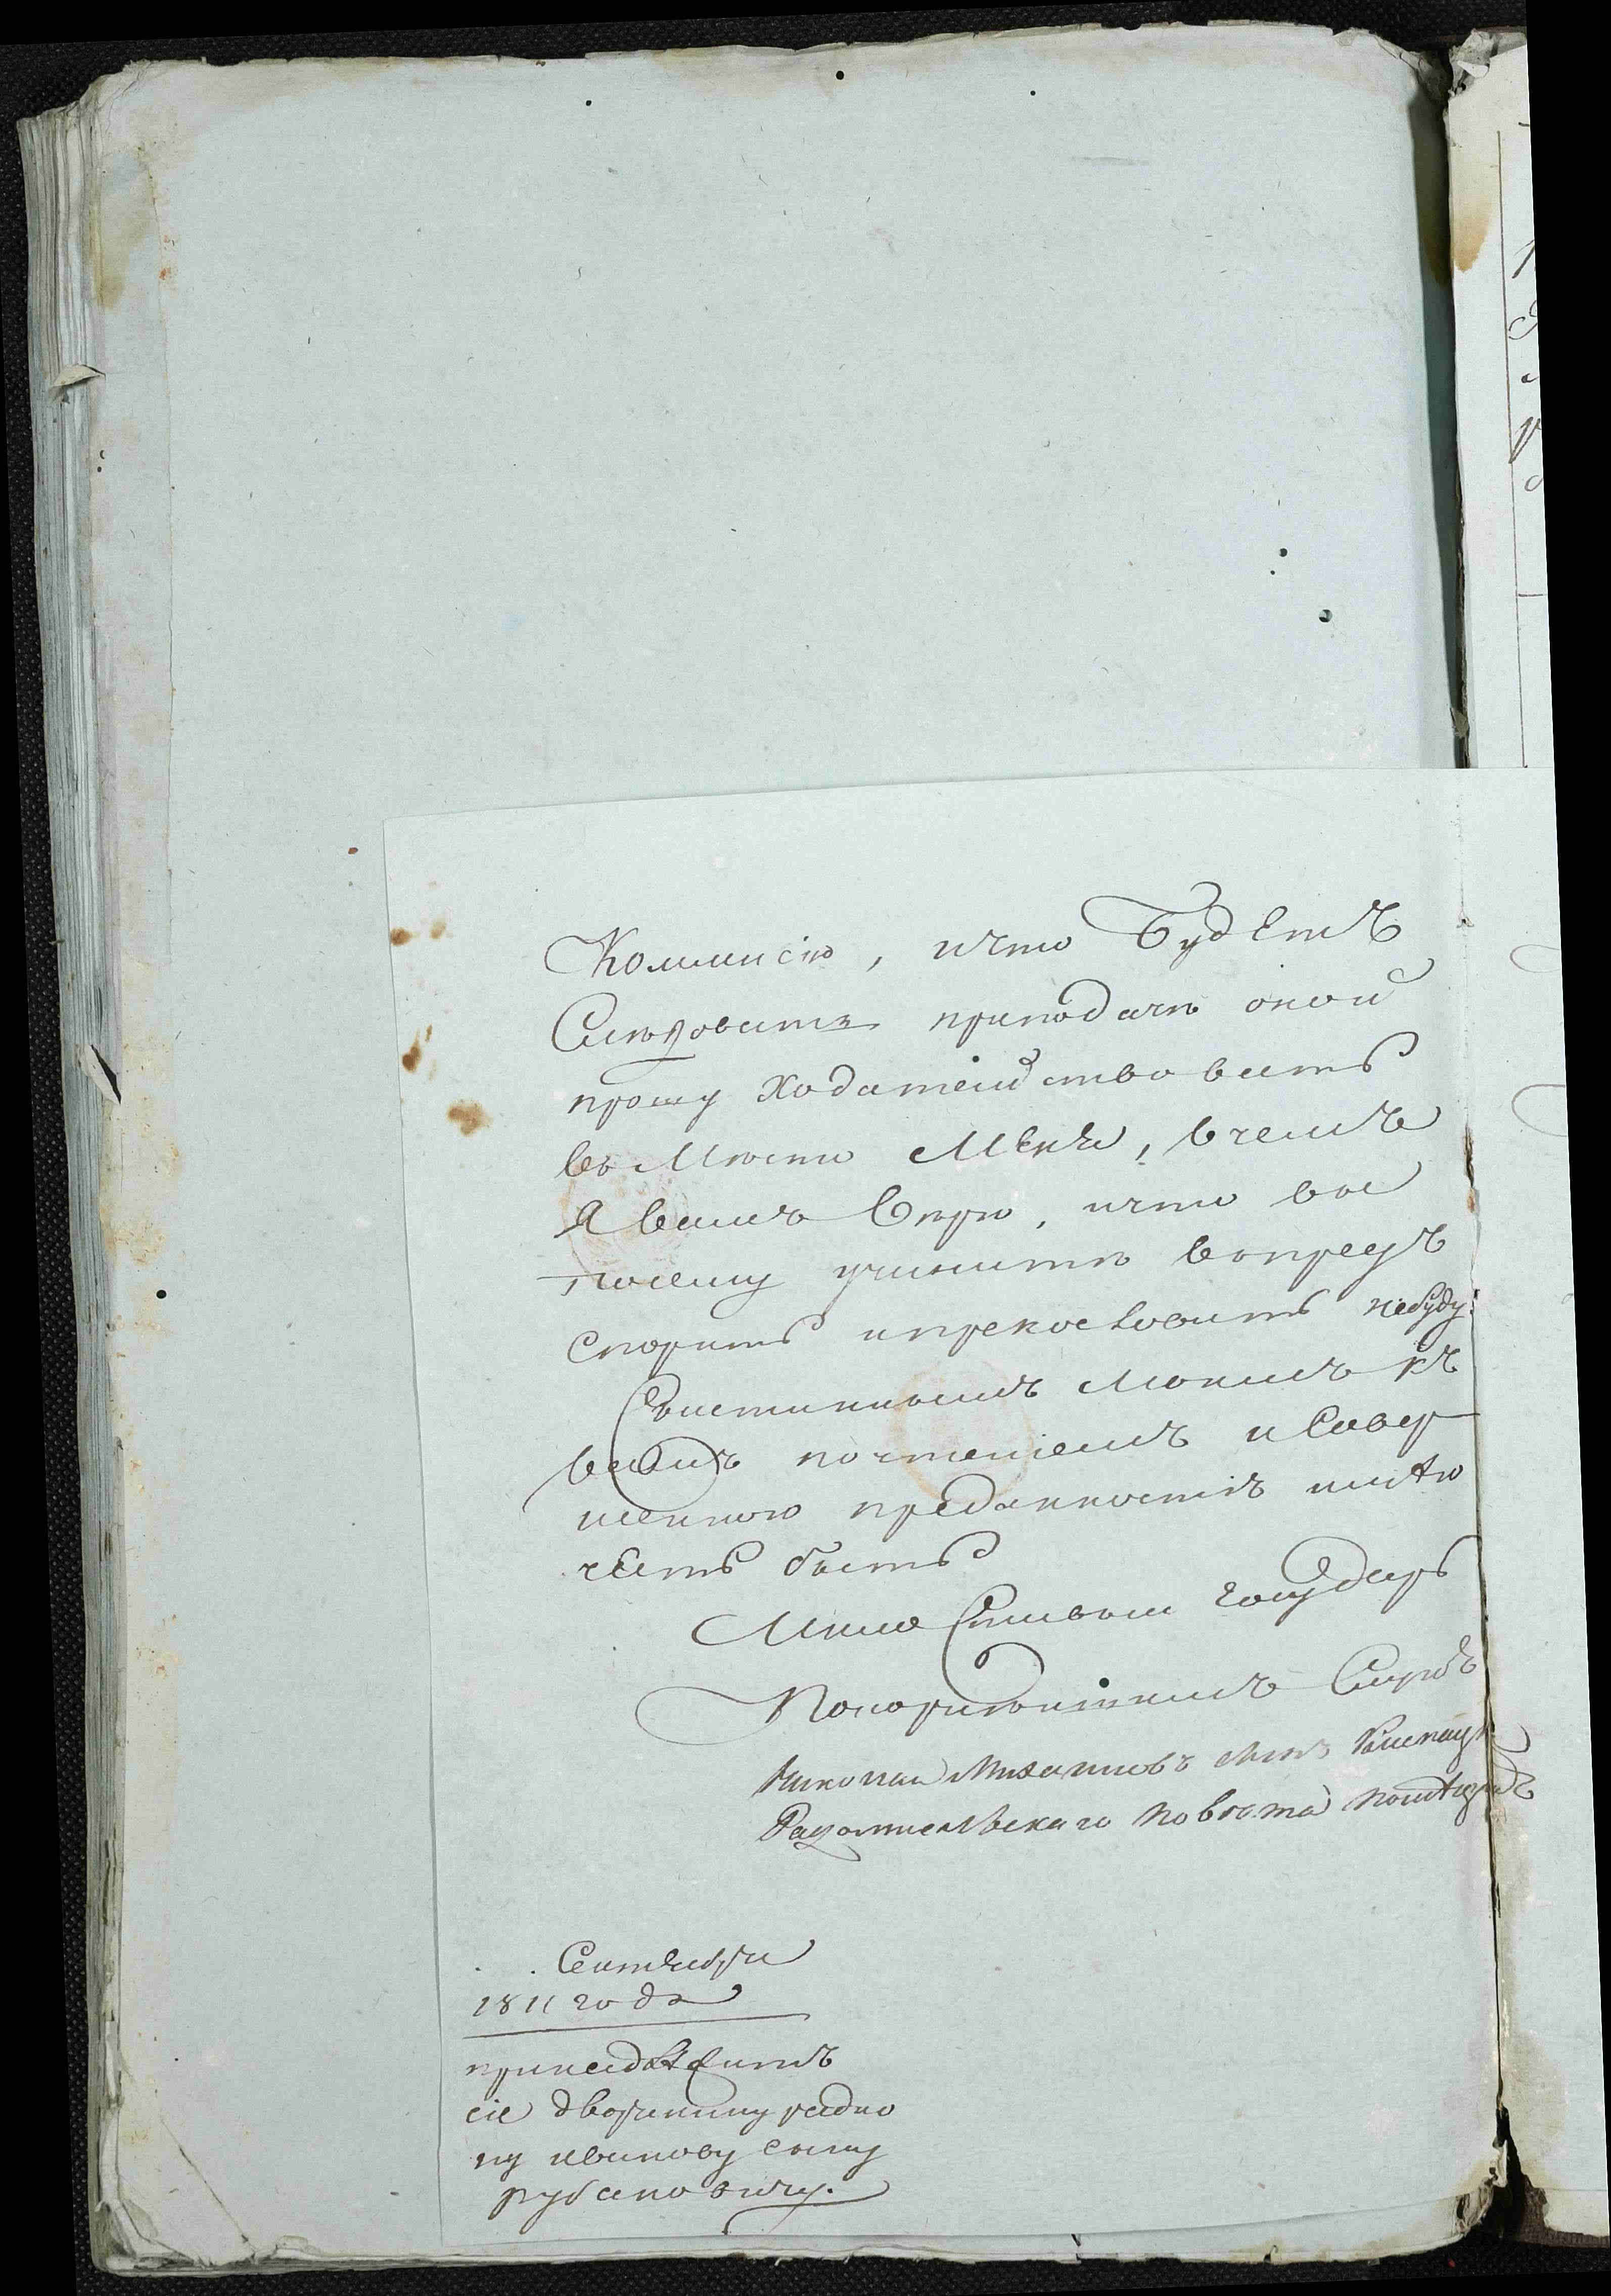 Коммисію, ичто будетъ
Слѣдовать приподачѣ оной
прошу ходатействовать
вомѣсто меня, вчемъ
я вамъ вѣрю, ичто вы
посему учините впредъ
спорить ипрекословить небуду.
Систиннымъ моимъ къ
вамъ почтеніемъ исовер
шенною преданностію имѣю
честь быть
Милостивый государь
Покорнѣйшимъ Слугою
Николай Михайловъ сынъ
Радомисльскаго повѣта помѣщикъ
Сентября
1811 года
принадлежитъ
сіе дворянину радио
ну иванову сыну
рубановичу.